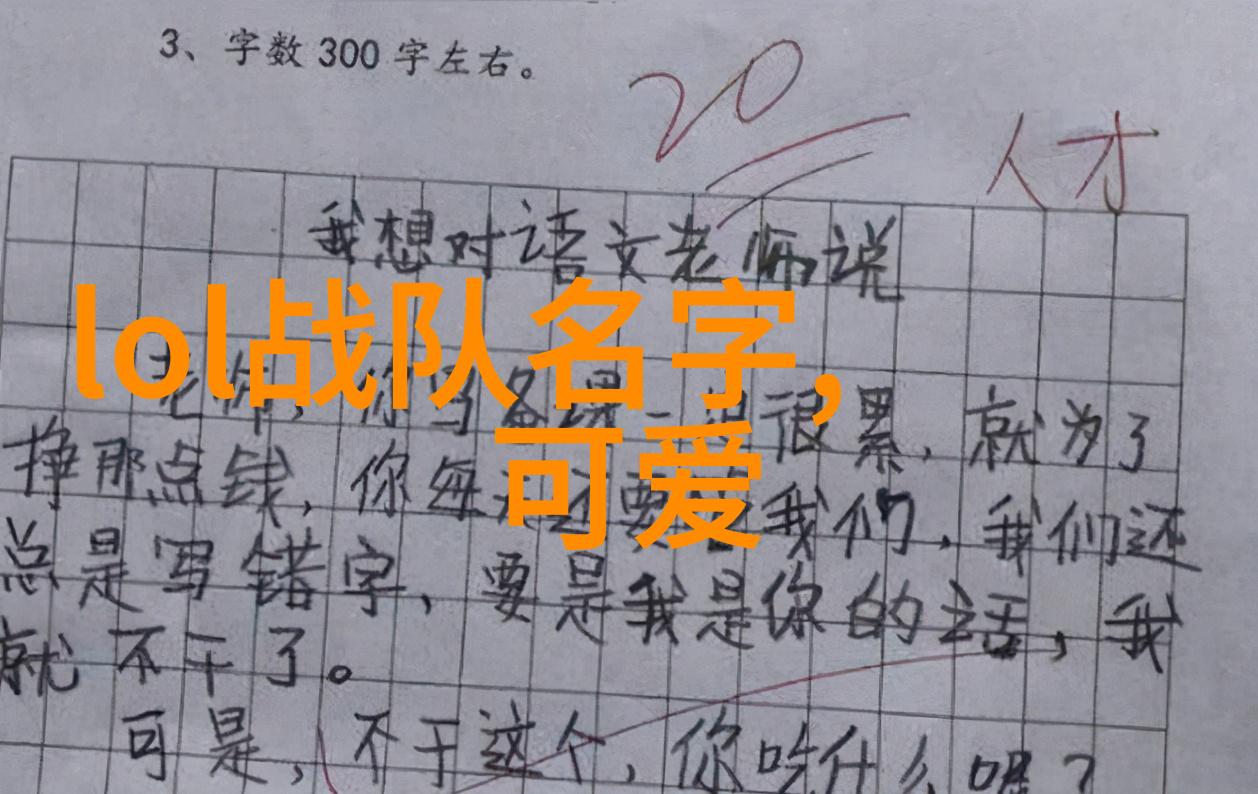 3、字数300字左右。
20
人才
我想对语文老师说
lol战队名字，
可爱
老师，你写备课一很累，就为了
挣那点钱，你每我们，我们还
总是写错字，要是我是你的话，我
就不干了。
可是，不干这个，你吃什么呢？